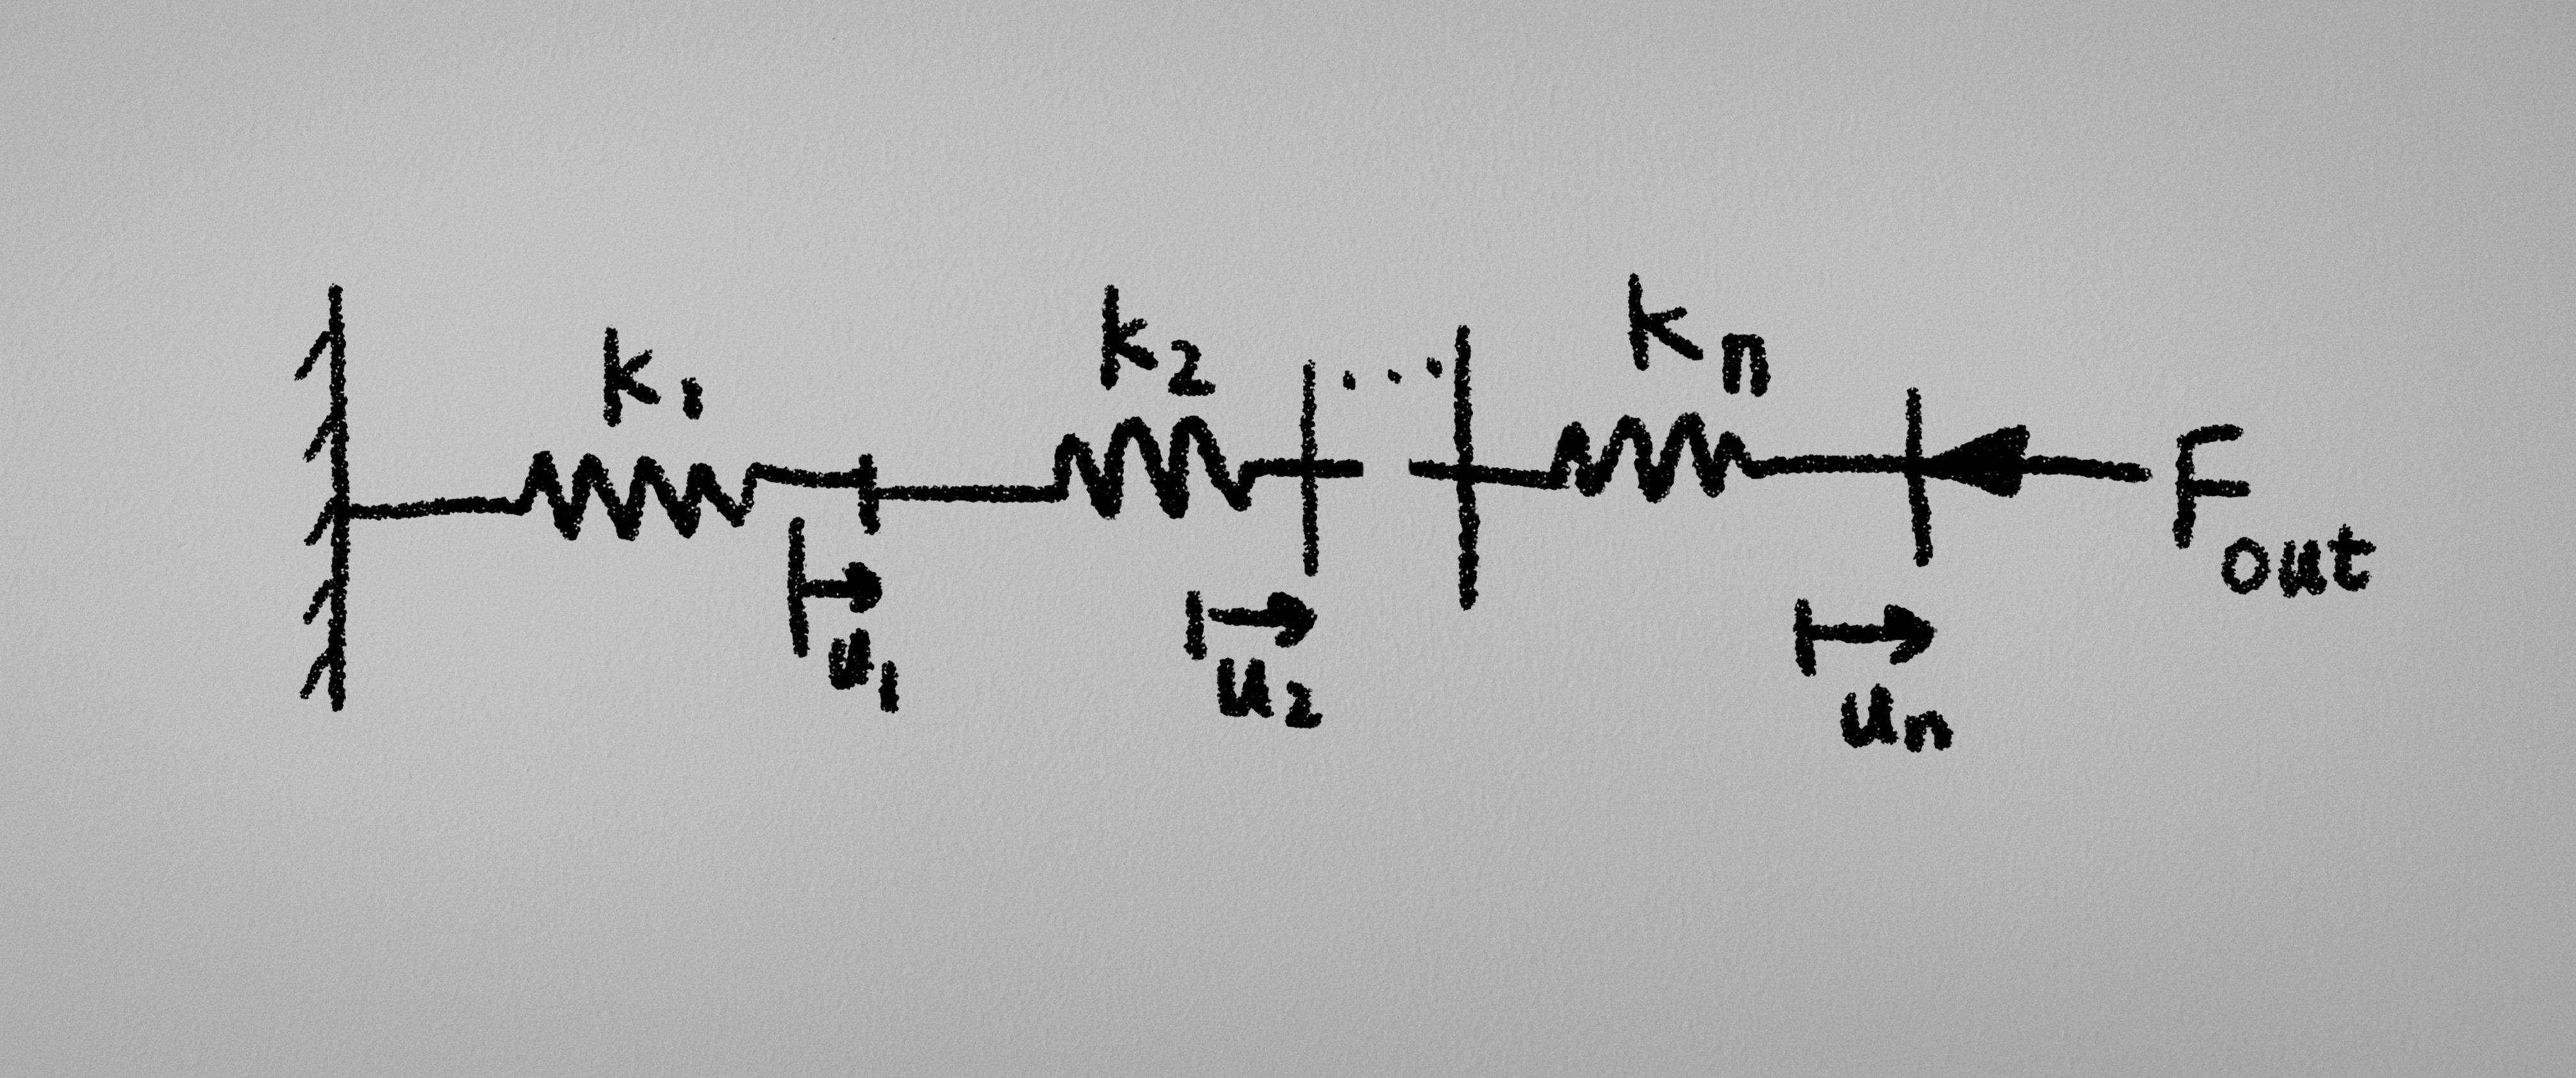 k₁ k₂ ... kₙ
Fout
u₁ u₂ uₙ